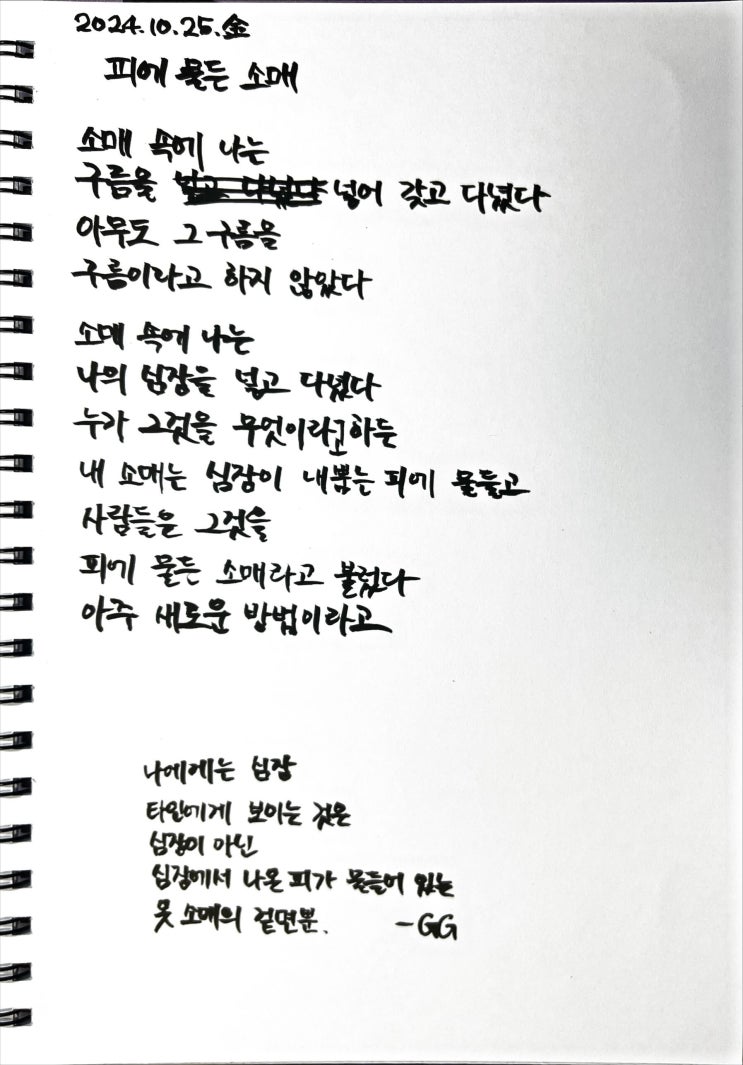 2024.10.25.金
피에 물든 소매
소매 속에 나는
구름을 넣고 다녔다 넣어 갖고 다녔다
아무도 그 구름을
구름이라고 하지 않았다
소매 속에 나는
나의 심장을 넣고 다녔다
누가 그것을 무엇이라고하든
내 소매는 심장이 내뿜는 피에 물들고
사람들은 그것을
피에 물든 소매라고 불렀다
아주 새로운 방법이라고
나에게는 심장
타인에게 보이는 것은
심장이 아닌
심장에서 나온 피가 물들어 있는
옷 소매의 겉면뿐.
-GG